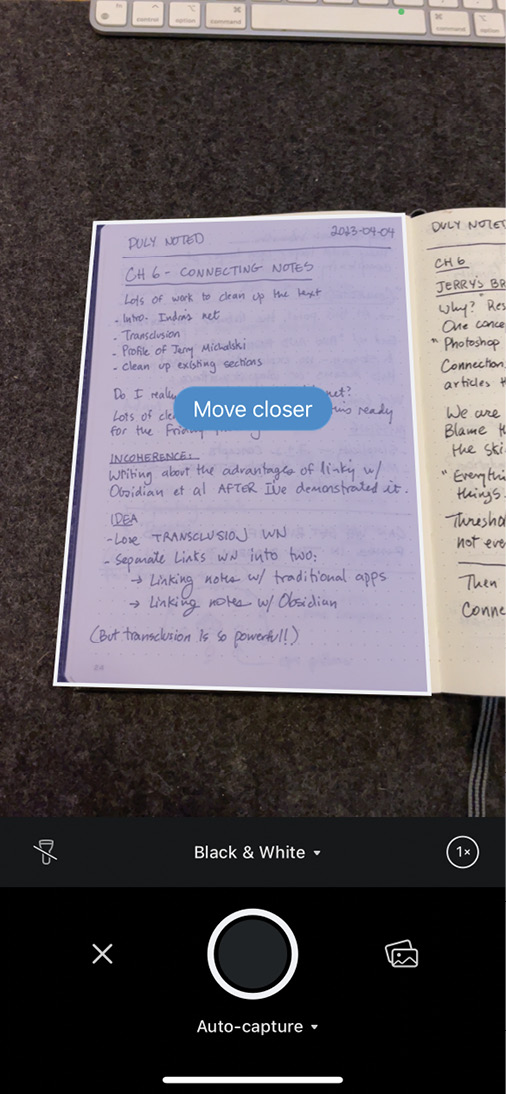 control
option
command
command
option
DULY NOTED
2023-04-04
CH 6 - CONNECTING NOTES
Lots of work to clean up the text
- Intro - Indra's net
- Transclusion
- Profile of Jerry Michalski
- clean up existing sections
Do I really net?
Lots of ready
for the
INCOHERENCE:
Writing about the advantages of linky w/
Obsidian et al AFTER I've demonstrated it.
IDEA
- Lose TRANSCLUSION WN
- Separate Links WN into two:
→ Linking notes w/ traditional apps
→ Linking notes w/ Obsidian
(But transclusion is so powerful!)
DULY NOTED
CH 6
JERRY'S BR
Why? Res
One conce
"Photoshop
Connection
articles t
We are
Blame t
the ski
"Everythi
things.
Threshol
not eve
Then
Conne
Move closer
Black & White
1×
Auto-capture